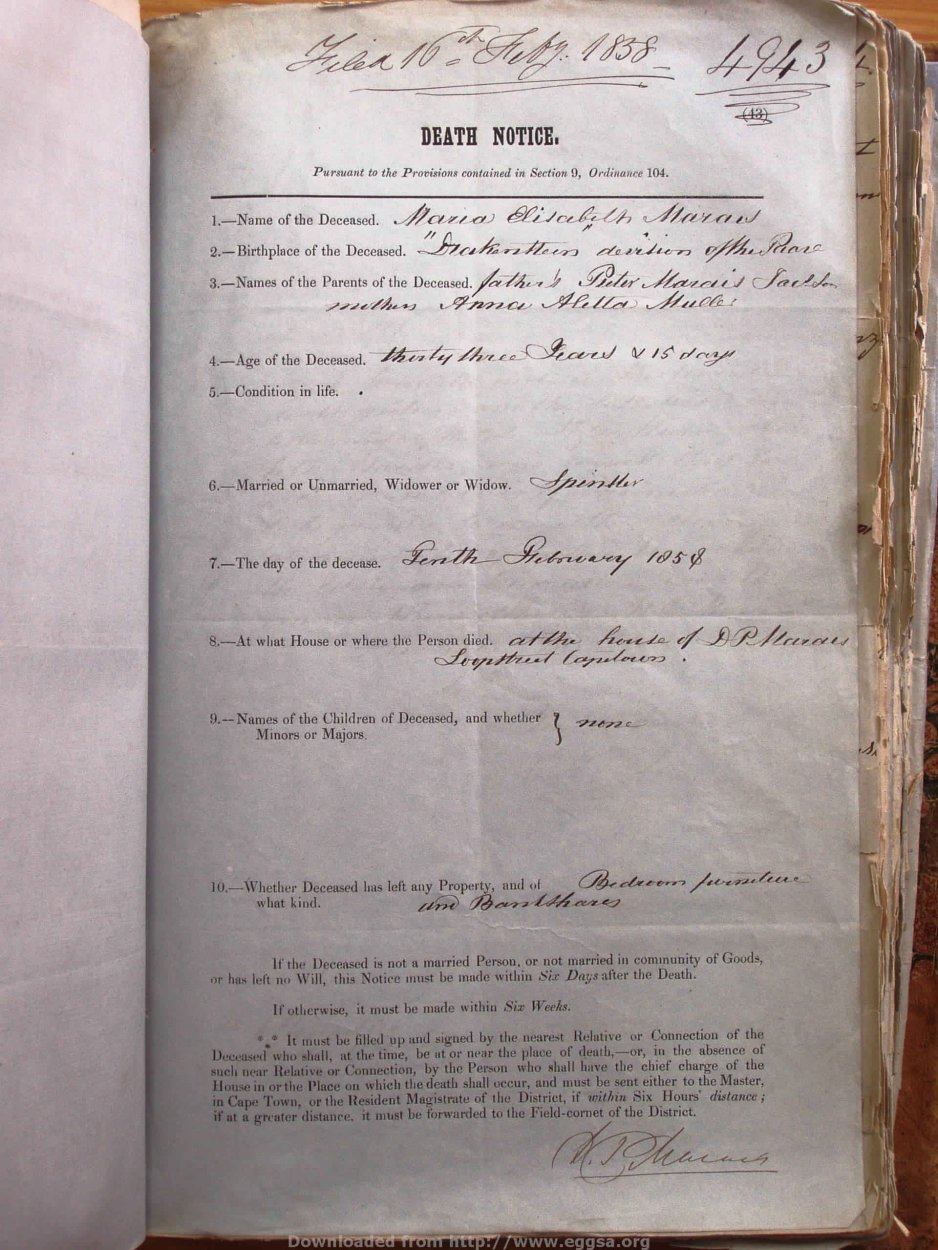 Filed 16th Feby. 1858 4943
(43)
DEATH NOTICE.
Pursuant to the Provisions contained in Section 9, Ordinance 104.
1.—Name of the Deceased. Maria Elisabeth Marais
2.—Birthplace of the Deceased. "Drakenstein" devision of the Paarl
3.—Names of the Parents of the Deceased. father's Pieter Marais
mothers Anna Aletta Muller
4.—Age of the Deceased. thirty three Years & 15 days
5.—Condition in life.
6.—Married or Unmarried, Widower or Widow. Spinster
7.—The day of the decease. Tenth February 1858
8.—At what House or where the Person died. at the house of D P Marais
Loopstreet Capetown.
9.—Names of the Children of Deceased, and whether } none
Minors or Majors.
10.—Whether Deceased has left any Property, and of Bedroom furniture
what kind. and Bankshares
If the Deceased is not a married Person, or not married in community of Goods,
or has left no Will, this Notice must be made within Six Days after the Death.
If otherwise, it must be made within Six Weeks.
*** It must be filled up and signed by the nearest Relative or Connection of the
Deceased who shall, at the time, be at or near the place of death,—or, in the absence of
such near Relative or Connection, by the Person who shall have the chief charge of the
House in or the Place on which the death shall occur, and must be sent either to the Master,
in Cape Town, or the Resident Magistrate of the District, if within Six Hours' distance;
if at a greater distance, it must be forwarded to the Field-cornet of the District.
P. Marais
Downloaded from http://www.eggsa.org